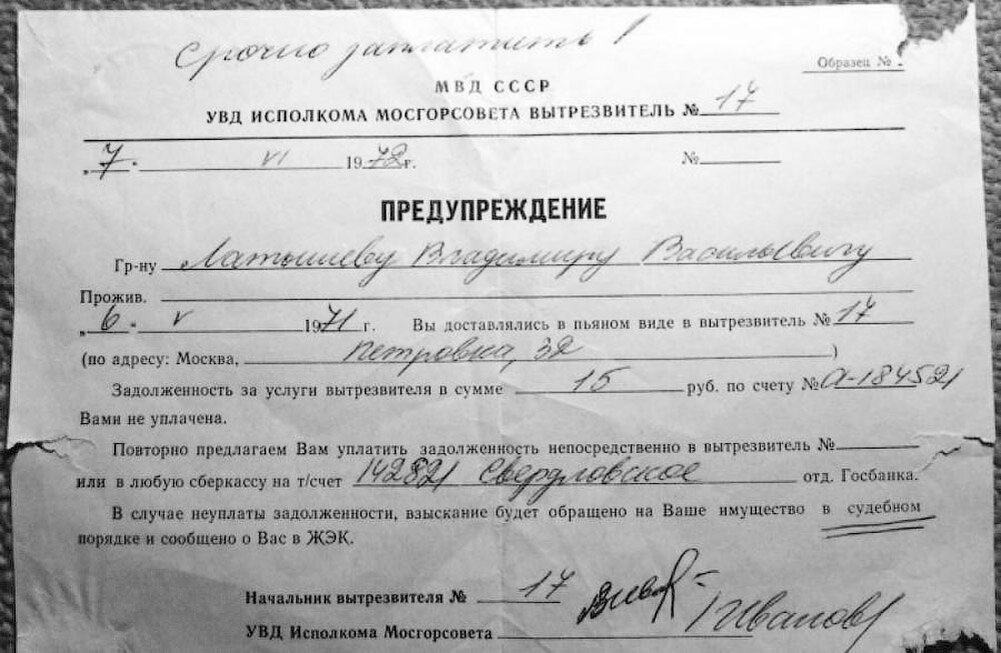 срочно заплатить!
Образец №
МВД СССР
УВД ИСПОЛКОМА МОСГОРСОВЕТА ВЫТРЕЗВИТЕЛЬ № 17
„7" VI 1972 г. №
ПРЕДУПРЕЖДЕНИЕ
Гр-ну Латышеву Владимиру Васильевичу
Прожив.
„6" V 1971 г. Вы доставлялись в пьяном виде в вытрезвитель № 17
(по адресу: Москва, Петровка, 32)
Задолженность за услуги вытрезвителя в сумме 15 руб. по счету № А-184521
Вами не уплачена.
Повторно предлагаем Вам уплатить задолженность непосредственно в вытрезвитель №
или в любую сберкассу на т/счет 142821 Свердловское отд. Госбанка.
В случае неуплаты задолженности, взыскание будет обращено на Ваше имущество в судебном
порядке и сообщено о Вас в ЖЭК.
Начальник вытрезвителя № 17
УВД Исполкома Мосгорсовета Иванов